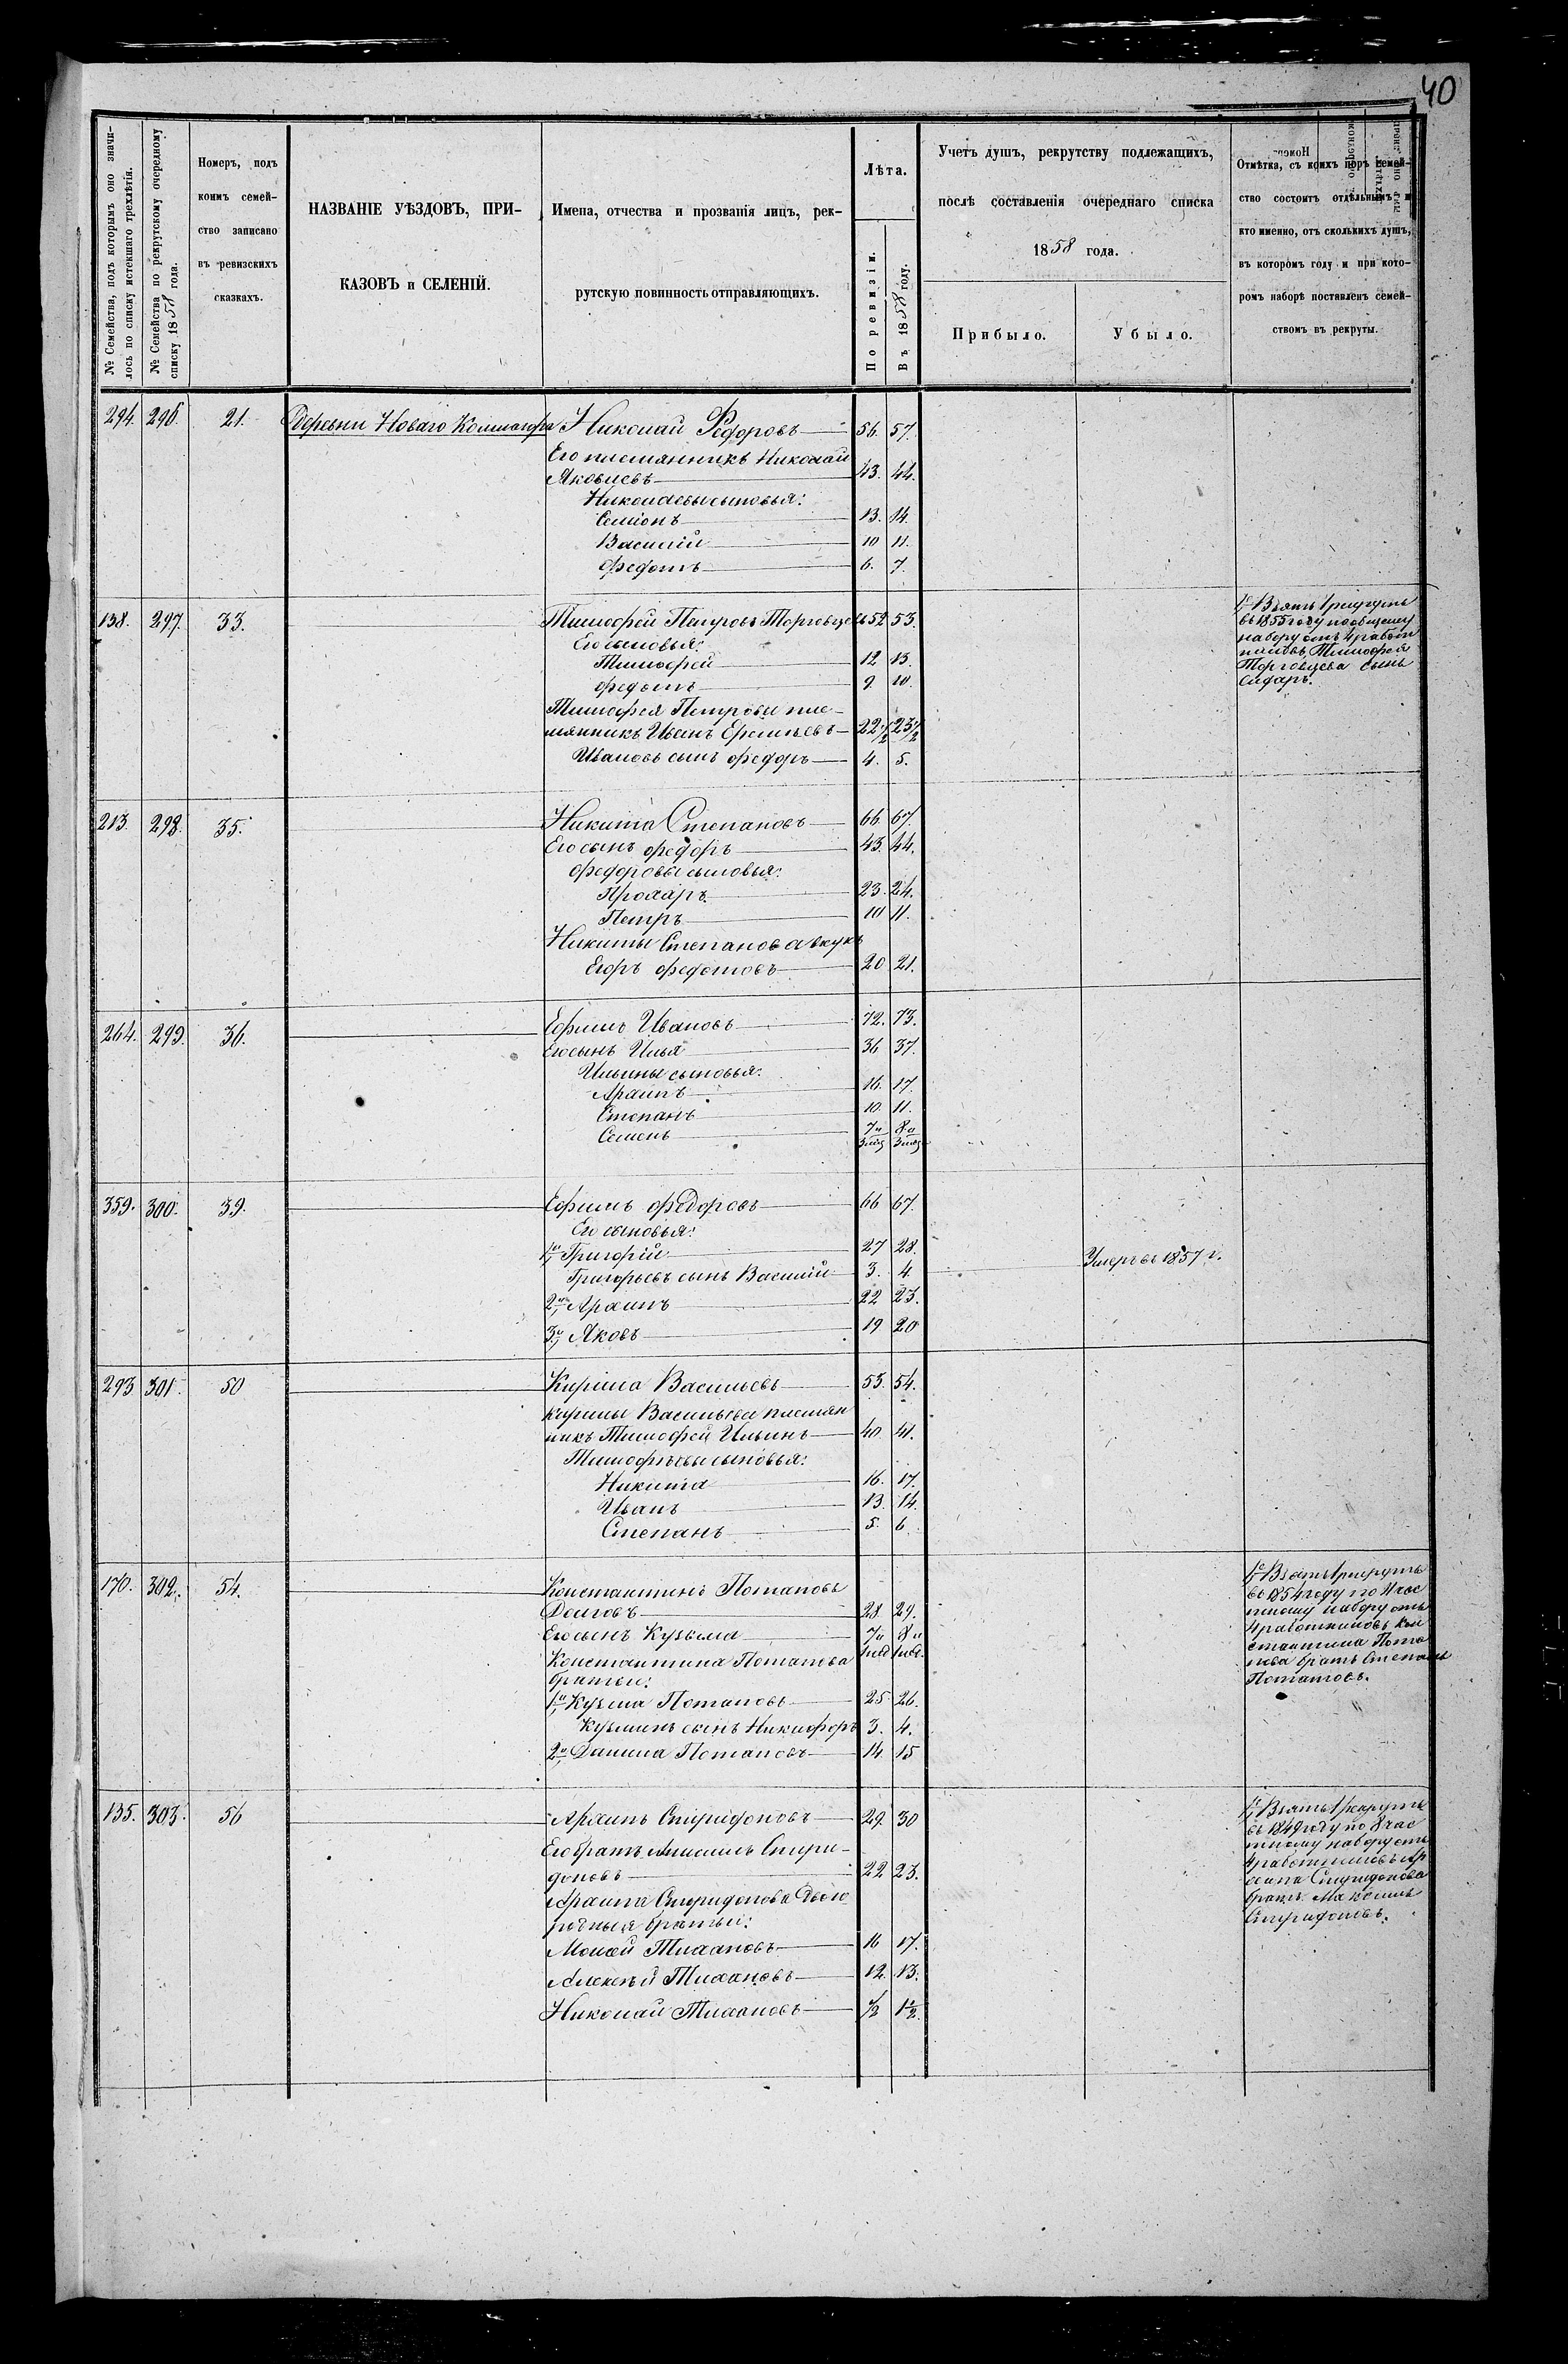 40
№ Семейства, подъ которымъ оно значи-
лось по списку истекшаго трехлѣтія.
№ Семейства по рекрутскому очередному
списку 1858 года.
Номеръ, подъ
коимъ семей-
ство записано
въ ревизскихъ
сказкахъ.
НАЗВАНІЕ УѢЗДОВЪ, ПРИ-
КАЗОВЪ и СЕЛЕНІЙ.
Имена, отчества и прозванія лицъ, рек-
рутскую повинность отправляющихъ.
Лѣта.
По ревизіи.
Въ 1858 году.
Учетъ душъ, рекрутству подлежащихъ,
послѣ составленія очереднаго списка
1858 года.
Прибыло.
Убыло.
Отмѣтка, съ коихъ поръ семей-
ство состоитъ отдѣльнымъ и
кто именно, отъ сколькихъ душъ,
въ которомъ году и при кото-
ромъ наборѣ поставленъ семей-
ствомъ въ рекруты.
294. 296. 21. Деревни Новаго Николай Федоровъ 56. 57.
Его племянникъ Николай
Яковлевъ 43. 44.
Николаевы сыновья:
Семіонъ 13. 14.
Василій 10 11.
Федотъ 6. 7.
138. 297. 33. Тимофей Петровъ 52 53.
Его сыновья:
Тимофей 12 13.
Федотъ 9. 10.
Тимофея Петрова пле-
мянникъ Иванъ Еремѣевъ 22 1/2 23 1/2
Ивановъ сынъ Федоръ 4. 5.
1е Взятъ 1 рекрутъ
въ 1855 году по общему
набору отъ 4 работ
никовъ, Тимофея
Торговцева сынъ
Сидаръ.
213. 298. 35. Никита Степановъ 66. 67.
Его сынъ Федоръ 43. 44.
Федоровы сыновья:
Прохаръ 23. 24.
Петръ 10 11.
Никиты Степанова внукъ
Егоръ Федотовъ 20 21.
264. 299. 36. Ефимъ Ивановъ 72. 73.
Его сынъ Илья 36 37.
Ильины сыновья:
Архипъ 16. 17.
Степанъ 10. 11.
Семенъ 7и 8и
3 мѣс 3 мѣс
359. 300. 39. Ефимъ Федоровъ 66 67.
Его сыновья:
1й Григорій 27 28.
Григорьевъ сынъ Василій 3. 4. Умеръ въ 1857 г.
2й Архипъ 22 23.
3й Яковъ 19 20
293 301. 50 Кирила Васильевъ 53. 54.
Кирилы Васильева племян
никъ Тимофей Ильинъ 40. 41.
Тимофѣевы сыновья:
Никита 16. 17.
Иванъ 13. 14.
Степанъ 5. 6.
170. 302. 54. Константинъ Потаповъ
Долговъ 28. 29.
Его сынъ Кузьма 7и 8и
Константина Потапова
братья:
1й Кузьма Потаповъ 25. 26.
Кузьминъ сынъ Никифоръ 3. 4.
2й Данила Потаповъ 14. 15
1е Взятъ 1 рекрутъ
въ 1854 году по 11 час
тному набору отъ
4 работниковъ Кон
стантина Пота
пова братъ Степанъ
Потаповъ.
135. 303. 56 Архипъ Спиридоновъ 29. 30
Его братъ Анисимъ Спири-
доновъ 22 23.
Архипа Спиридонова двою
родныя братья:
Моисей Тихановъ 16 17.
Алексѣй Тихановъ 12. 13.
Николай Тихановъ 1/2 1 1/2
1е Взятъ 1 рекрутъ
въ 1849 году по 8 час
тному набору отъ
4 работниковъ Ар
хипа Спиридонова
братъ Максимъ
Спиридоновъ.